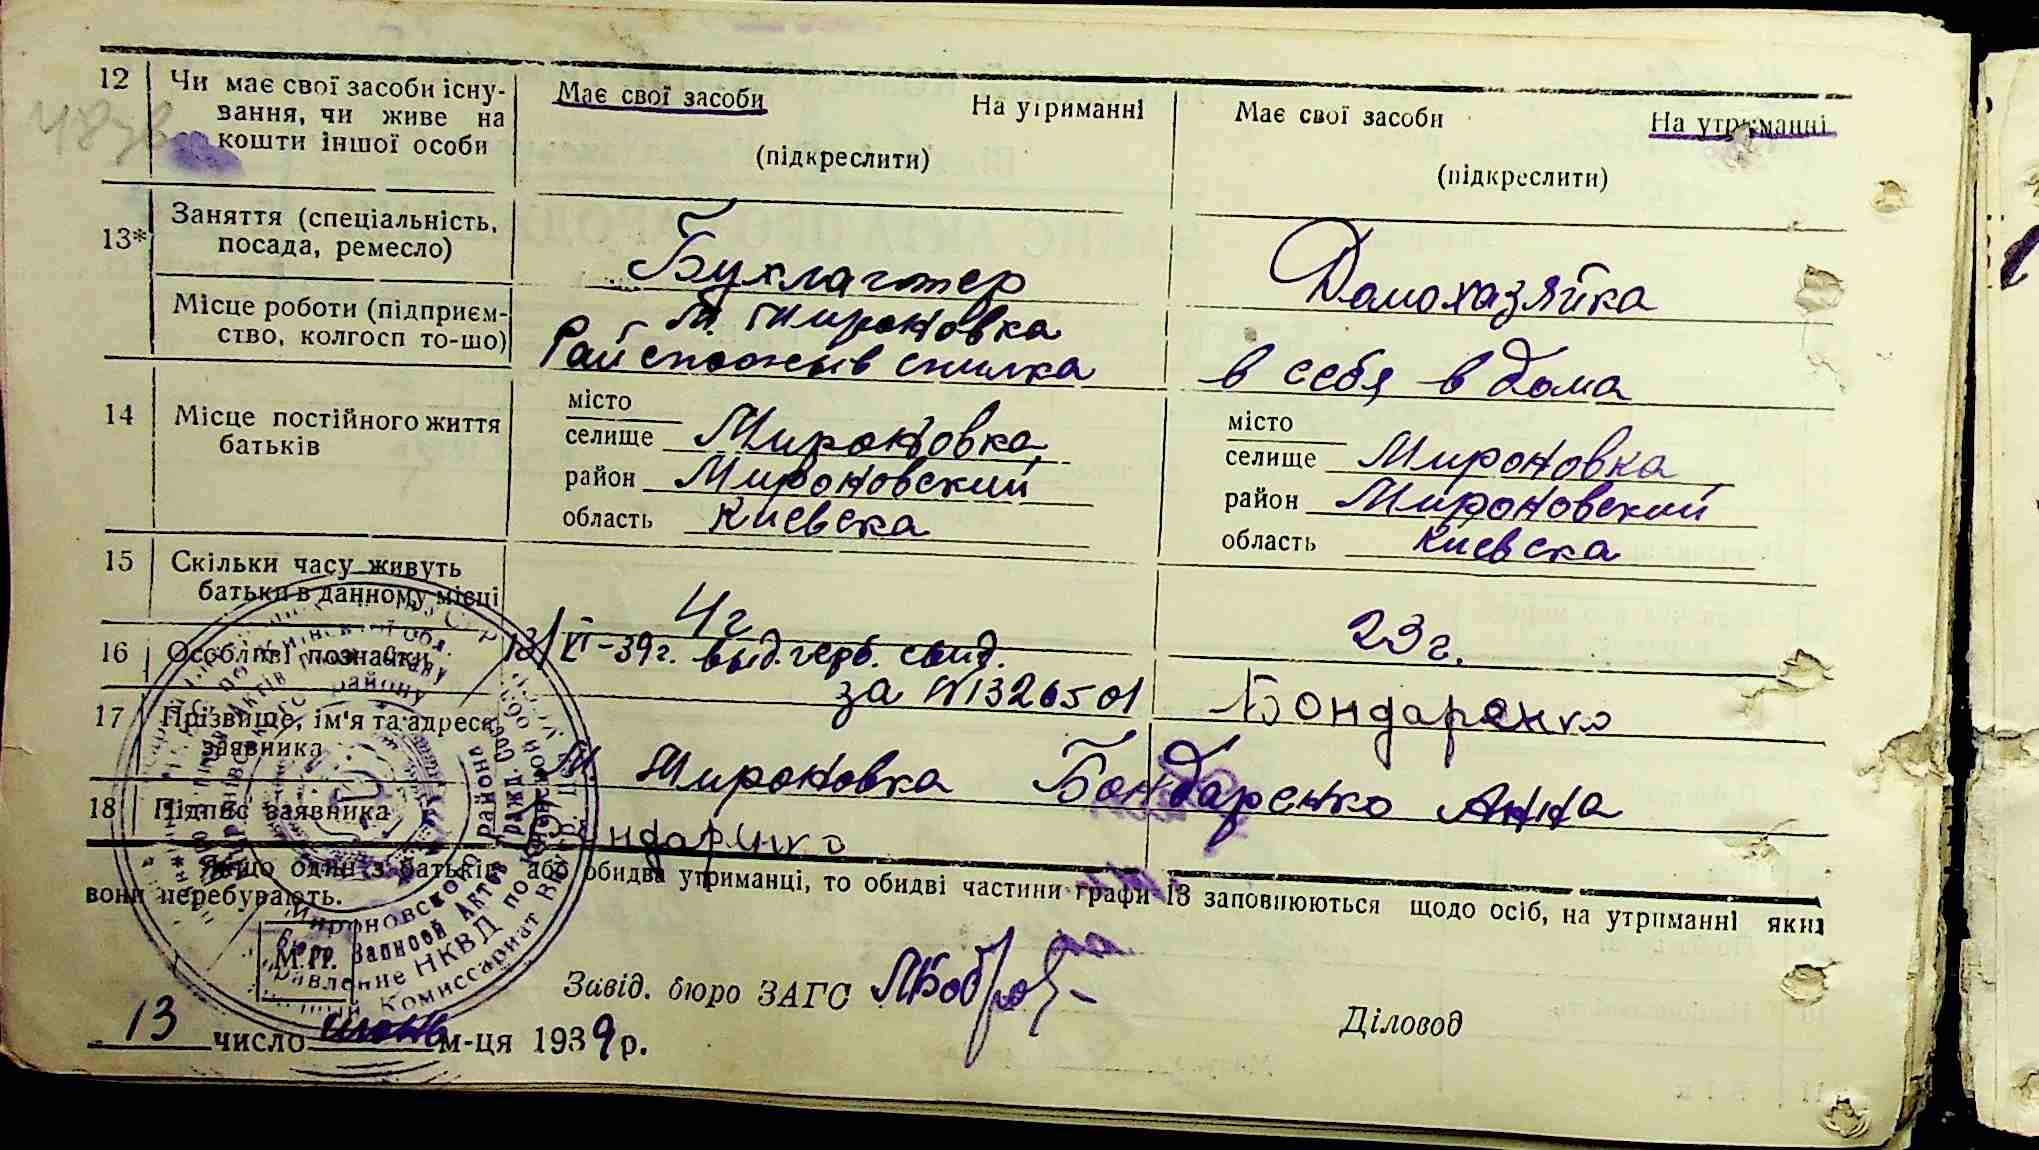 12 Чи має свої засоби існу-
вання, чи живе на
кошти іншої особи
Має свої засоби На утриманні
(підкреслити)
Має свої засоби На утриманні
(підкреслити)
13* Заняття (спеціальність,
посада, ремесло)
Бухлагтер
Домохазяйка
Місце роботи (підприєм-
ство, колгосп то-що)
М. Мироновка
Райспожив спилка
в себя в дома
14 Місце постійного життя
батьків
місто
селище Мироновка
район Мироновский
область Киевска
місто
селище Мироновка
район Мироновский
область Киевска
15 Скільки часу живуть
батьки в данному місці
4г
23г.
16 Особливі познаки
13/VI-39г. выд. герб. свид.
за №1326501
Бондаренко
17 Прізвище, ім'я та адреса
заявника
М. Мироновка Бондаренко Анна
18 Підпис заявника
Бондаринко
Якщо один з батьків або обидва утриманці, то обидві частини графи 13 заповнюються щодо осіб, на утриманні яких
вони перебувають.
М.П.
Завід. бюро ЗАГС
Діловод
13 число июнь м-ця 1939 р.